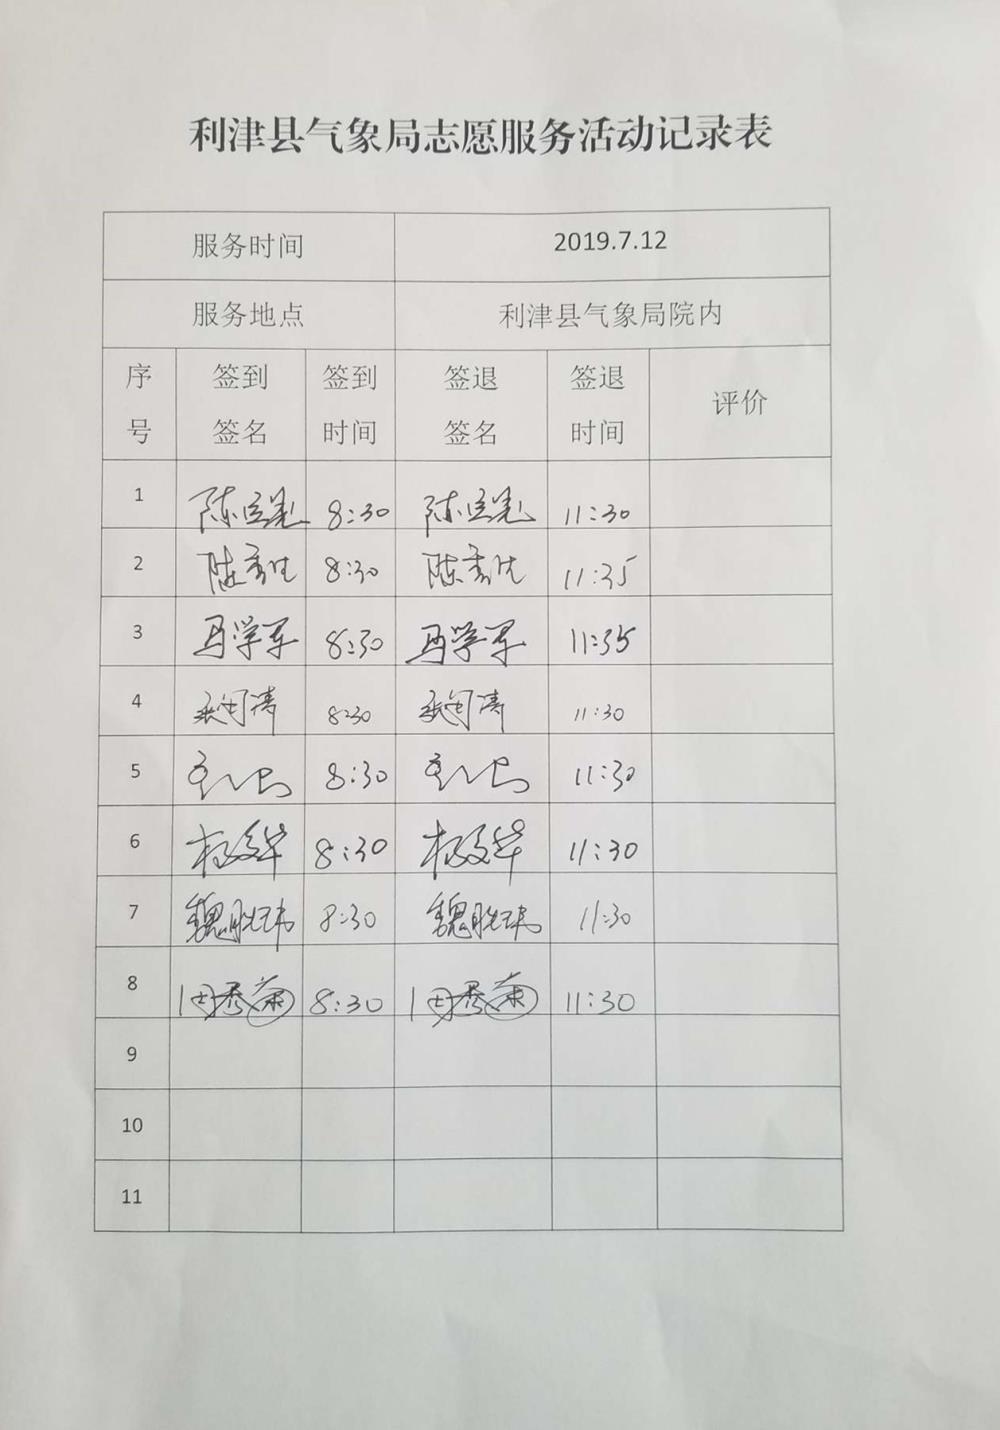 利津县气象局志愿服务活动记录表
服务时间 2019.7.12
服务地点 利津县气象局院内
序号 签到签名 签到时间 签退签名 签退时间 评价
1 8:30 11:30
2 8:30 11:35
3 马学军 8:30 马学军 11:35
4 8:30 11:30
5 8:30 11:30
6 8:30 11:30
7 魏胜玮 8:30 魏胜玮 11:30
8 田秀菊 8:30 田秀菊 11:30
9
10
11